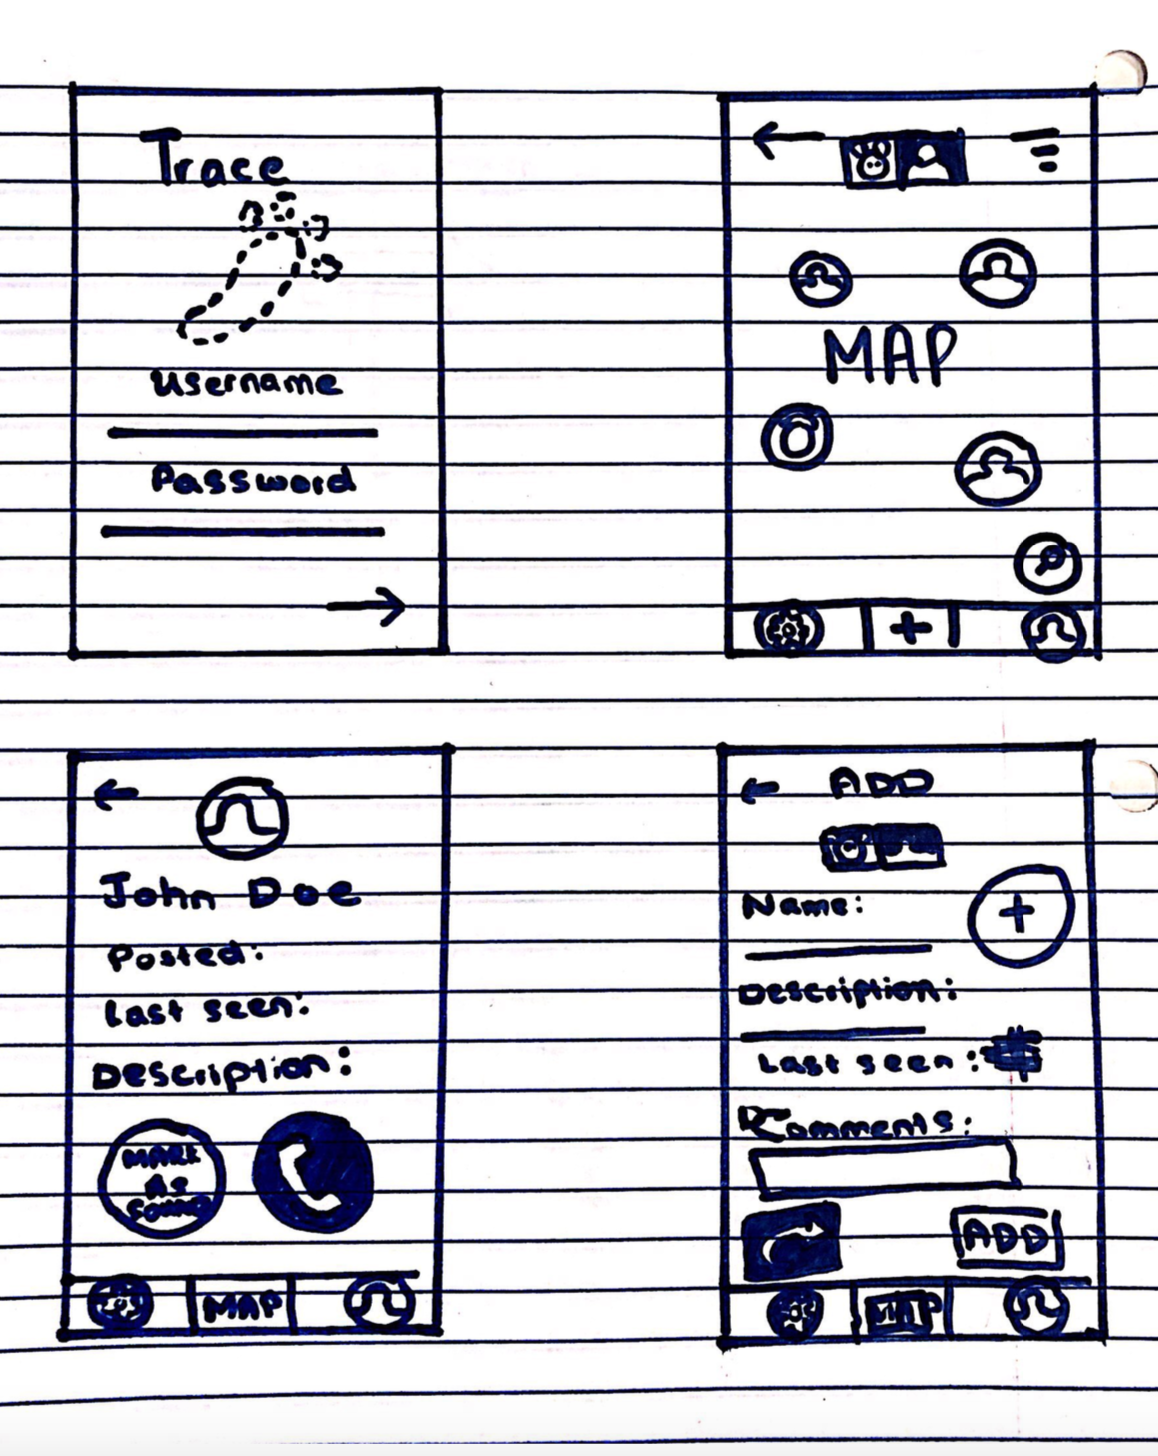 Trace
Username
Password
MAP
+
John Doe
Posted:
Last seen:
Description:
MARK
AS
FOUND
MAP
ADD
Name:
+
Description:
Last seen:
Comments:
ADD
MAP